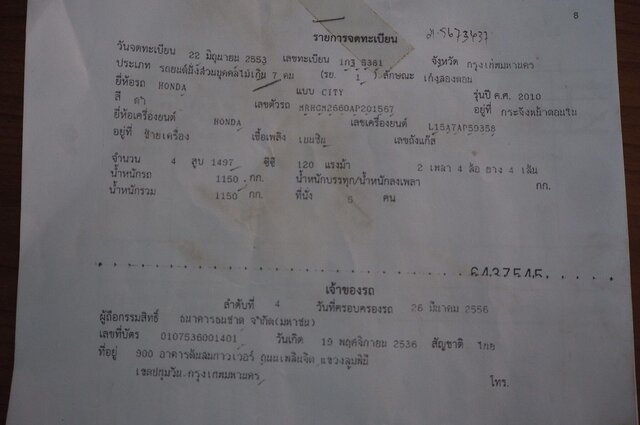 8
รายการจดทะเบียน
วันจดทะเบียน 22 มิถุนายน 2553 เลขทะเบียน 1กว 5361 จังหวัด กรุงเทพมหานคร
ประเภท รถยนต์นั่งส่วนบุคคลไม่เกิน 7 คน (รย. 1 ) ลักษณะ เก๋งสองตอน
ยี่ห้อรถ HONDA แบบ CITY รุ่นปี ค.ศ. 2010
สี ดำ เลขตัวรถ MRHGM2660AP201567 อยู่ที่ กระจังหน้าตอนใน
ยี่ห้อเครื่องยนต์ HONDA เลขเครื่องยนต์ L15A7AP59358
อยู่ที่ ซ้ายเครื่อง เชื้อเพลิง เบนซิน เลขถังแก๊ส
จำนวน 4 สูบ 1497 ซีซี 120 แรงม้า 2 เพลา 4 ล้อ ยาง 4 เส้น
น้ำหนักรถ 1150 กก. น้ำหนักบรรทุก/น้ำหนักลงเพลา กก.
น้ำหนักรวม 1150 กก. ที่นั่ง 5 คน
6437545
เจ้าของรถ
ลำดับที่ 4 วันที่ครอบครองรถ 26 มีนาคม 2556
ผู้ถือกรรมสิทธิ์ ธนาคารธนชาต จำกัด(มหาชน)
เลขที่บัตร 0107536001401 วันเกิด 19 พฤศจิกายน 2536 สัญชาติ ไทย
ที่อยู่ 900 อาคารต้นสนทาวเวอร์ ถนนเพลินจิต แขวงลุมพินี
เขตปทุมวัน กรุงเทพมหานคร
โทร.